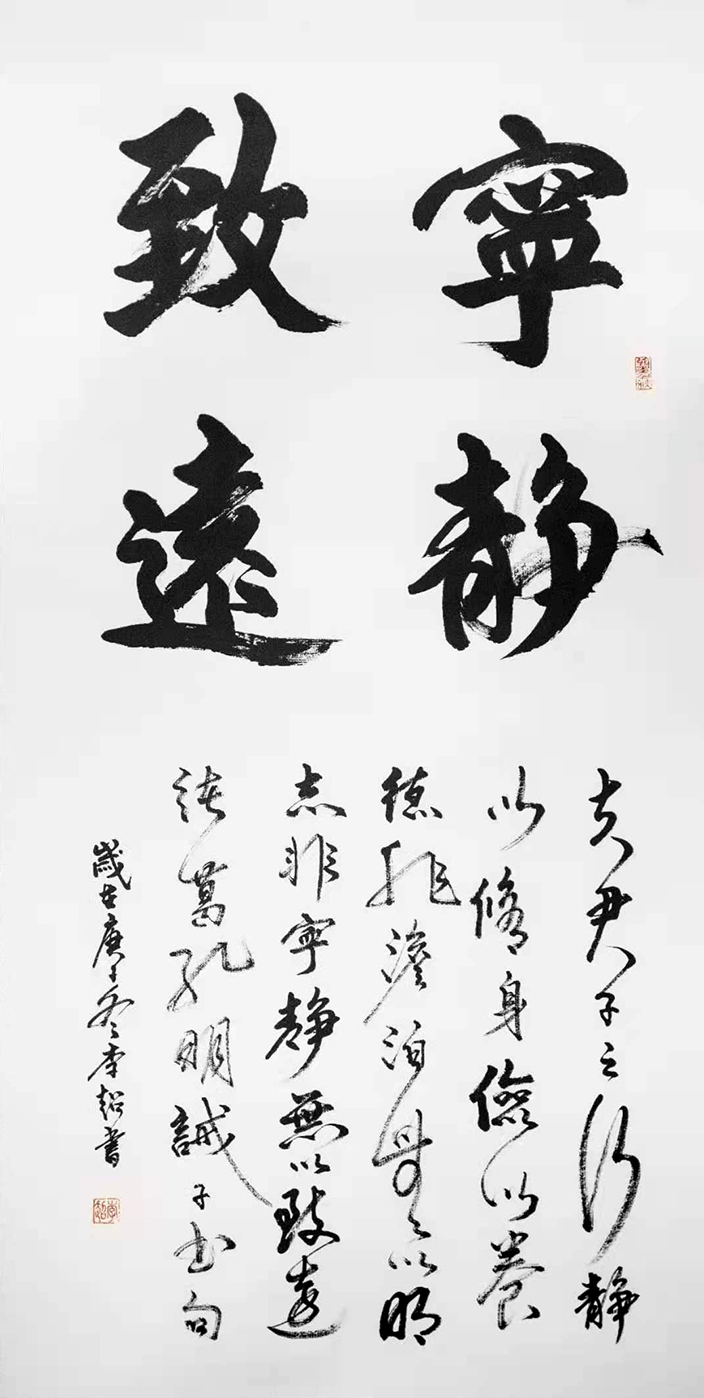 寧靜
致遠
夫君子之行靜
以脩身儉以養
德非澹泊無以明
志非寧靜無以致遠
諸葛孔明誡子書句
歲在庚子冬李超書